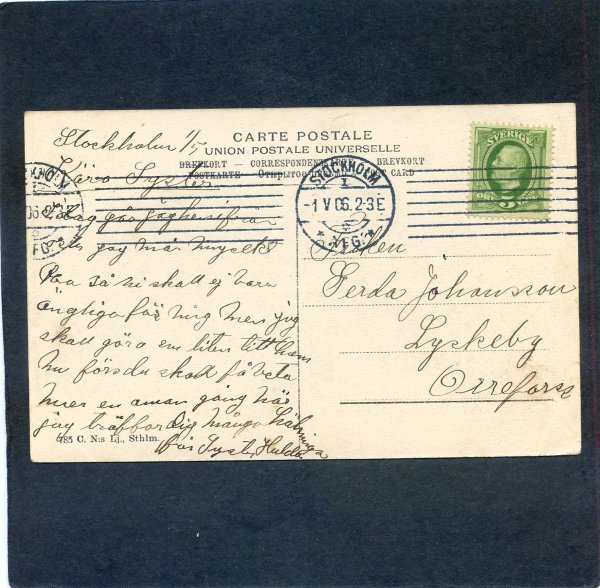 CARTE POSTALE
UNION POSTALE UNIVERSELLE
BREFKORT — CORRESPONDENTE BREVKORT
POSTKARTE CARD
SVERIGE
5
STOCKHOLM
1
-1 V 06. 2-3 E
Stockholm 1/5
Kära Syster
jag må mycke
bra så ni skall ej vara
ängtliga för mig men jag
skall göra en liten titt hem
nu först du skall få veta
mer en anan gång när
jag träffar Dig många hälninga
från Syster Hulda
Fröken
Gerda Johansson
Lyckeby
Orrefors
785 C. N:s Lj., Sthlm.